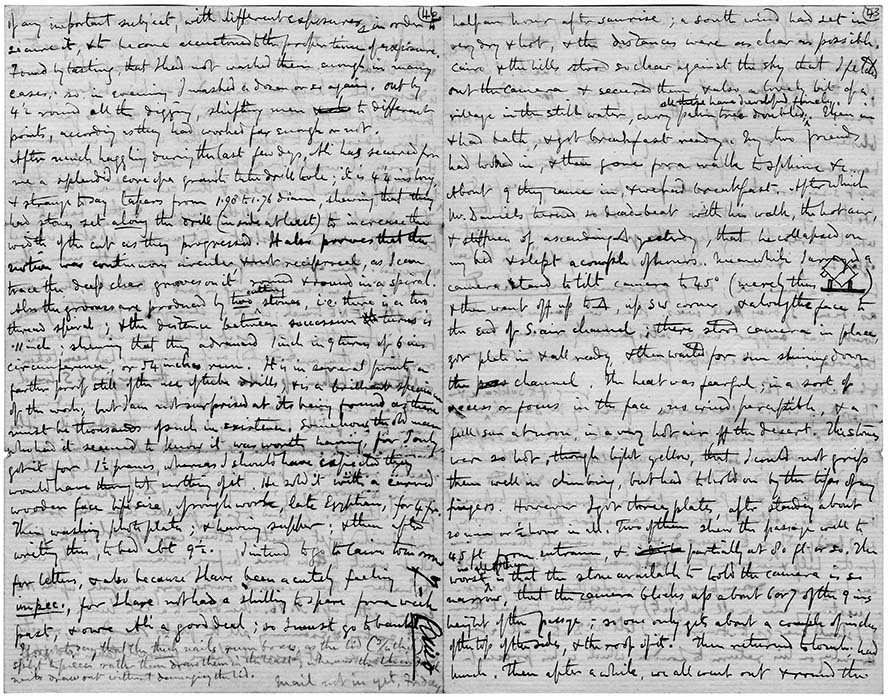 42
of any important subject, with different exposures, in order to
secure it, & to become accustomed to the proper time of exposure.
Found by testing, that I had not washed them enough in many
cases; so in evening I washed a dozen or so again. out by
4½ round all the digging, shifting men to different
points, according as they had worked far enough or not.
After much haggling during the last few days, Ali has secured for
me a splendid core of a granite tube drill hole; it is 4·4 ins long,
& strange to say tapers from 1·98 to 1·76 diam, shewing that they
had stones set along the drill (inside at least) to increase the
width of the cut as they progressed. It also proves that the
motion was continuous circular & not reciprocal, as I can
trace the deep clear grooves on it round & round in a spiral.
Also the grooves are produced by two cutting stones, i.e. there is a two
thread spiral; & the distance between successive turns is
·11 inch; shewing that they advanced 1 inch in 9 turns of 6 ins
circumference, or 54 inches run. It is in several points a
further proof still of the use of tube drills; & is a brilliant specimen
of the work, but I am not surprised at its being found as there
must be thousands of such in existence. Somehow the old man
who had it seemed to know it was worth having, for I only
got it for 1½ francs, whereas I should have expected they
would have thought nothing of it. He sold it with a carved
wooden face life size, of rough work, late Egyptian, for 4 fr.
Then washing photo plates; & having supper; & then after
writing this, to bed abt 9½. I intend to go to Cairo tomorrow
for letters, & also because I have been acutely feeling
impec., for I have not had a shilling to spare for a week
past, & owe Ali a good deal; so I must go to bank.
I forgot to say that the thick nails in as the lid
split to pieces rather than draw them in the least; whereas the other
nails draw out without damaging the lid.
mail not in yet, Friday
Cairo
43
half an hour after sunrise; a south wind had set in
very dry & hot, & the distances were as clear as possible.
Cairo & the hills stood so clear against the sky that I fetched
out the camera & secured them & also a lovely bit of a
village in the still water, every palm tree doubled. Then in
& had bath, & got breakfast ready. My two friends
had looked in, & then gone for a walk to Sphinx &c.
About 9 they came in, & we had breakfast. After which
Mr. Daniels turned so dead-beat with his walk, the hot air,
& stiffness of ascending yesterday, that he collapsed on
my bed & slept a couple of hours. Meanwhile I arranged a
camera stand to tilt camera to 45° (merely thus )
& then went off up to , up SW corner & along the face to
the end of S. air channel; there stood camera in place,
got plate in & all ready & then waited for sun shining down
the channel. The heat was fearful; in a sort of
recess or focus in the face, no wind perceptible, & a
full sun at noon, in a very hot air off the desert. The stones
were so hot, though light yellow, that I could not grip
them well in climbing, but had to hold on by the tips of my
fingers. However I got three plates, after standing about
20 min or ½ hour in all. Two of them shew the passage well to
45 ft from entrance, & partially at 80 ft or so. The
worst of all is that the stone available to hold the camera is so
narrow, that the camera blocks up about 6 or 7 of the 9 ins
height of the passage; so one only gets about a couple of inches
of the top of the sides, & the roof of it. Then returned to tomb & had
lunch. Then after a while, we all went out & round the